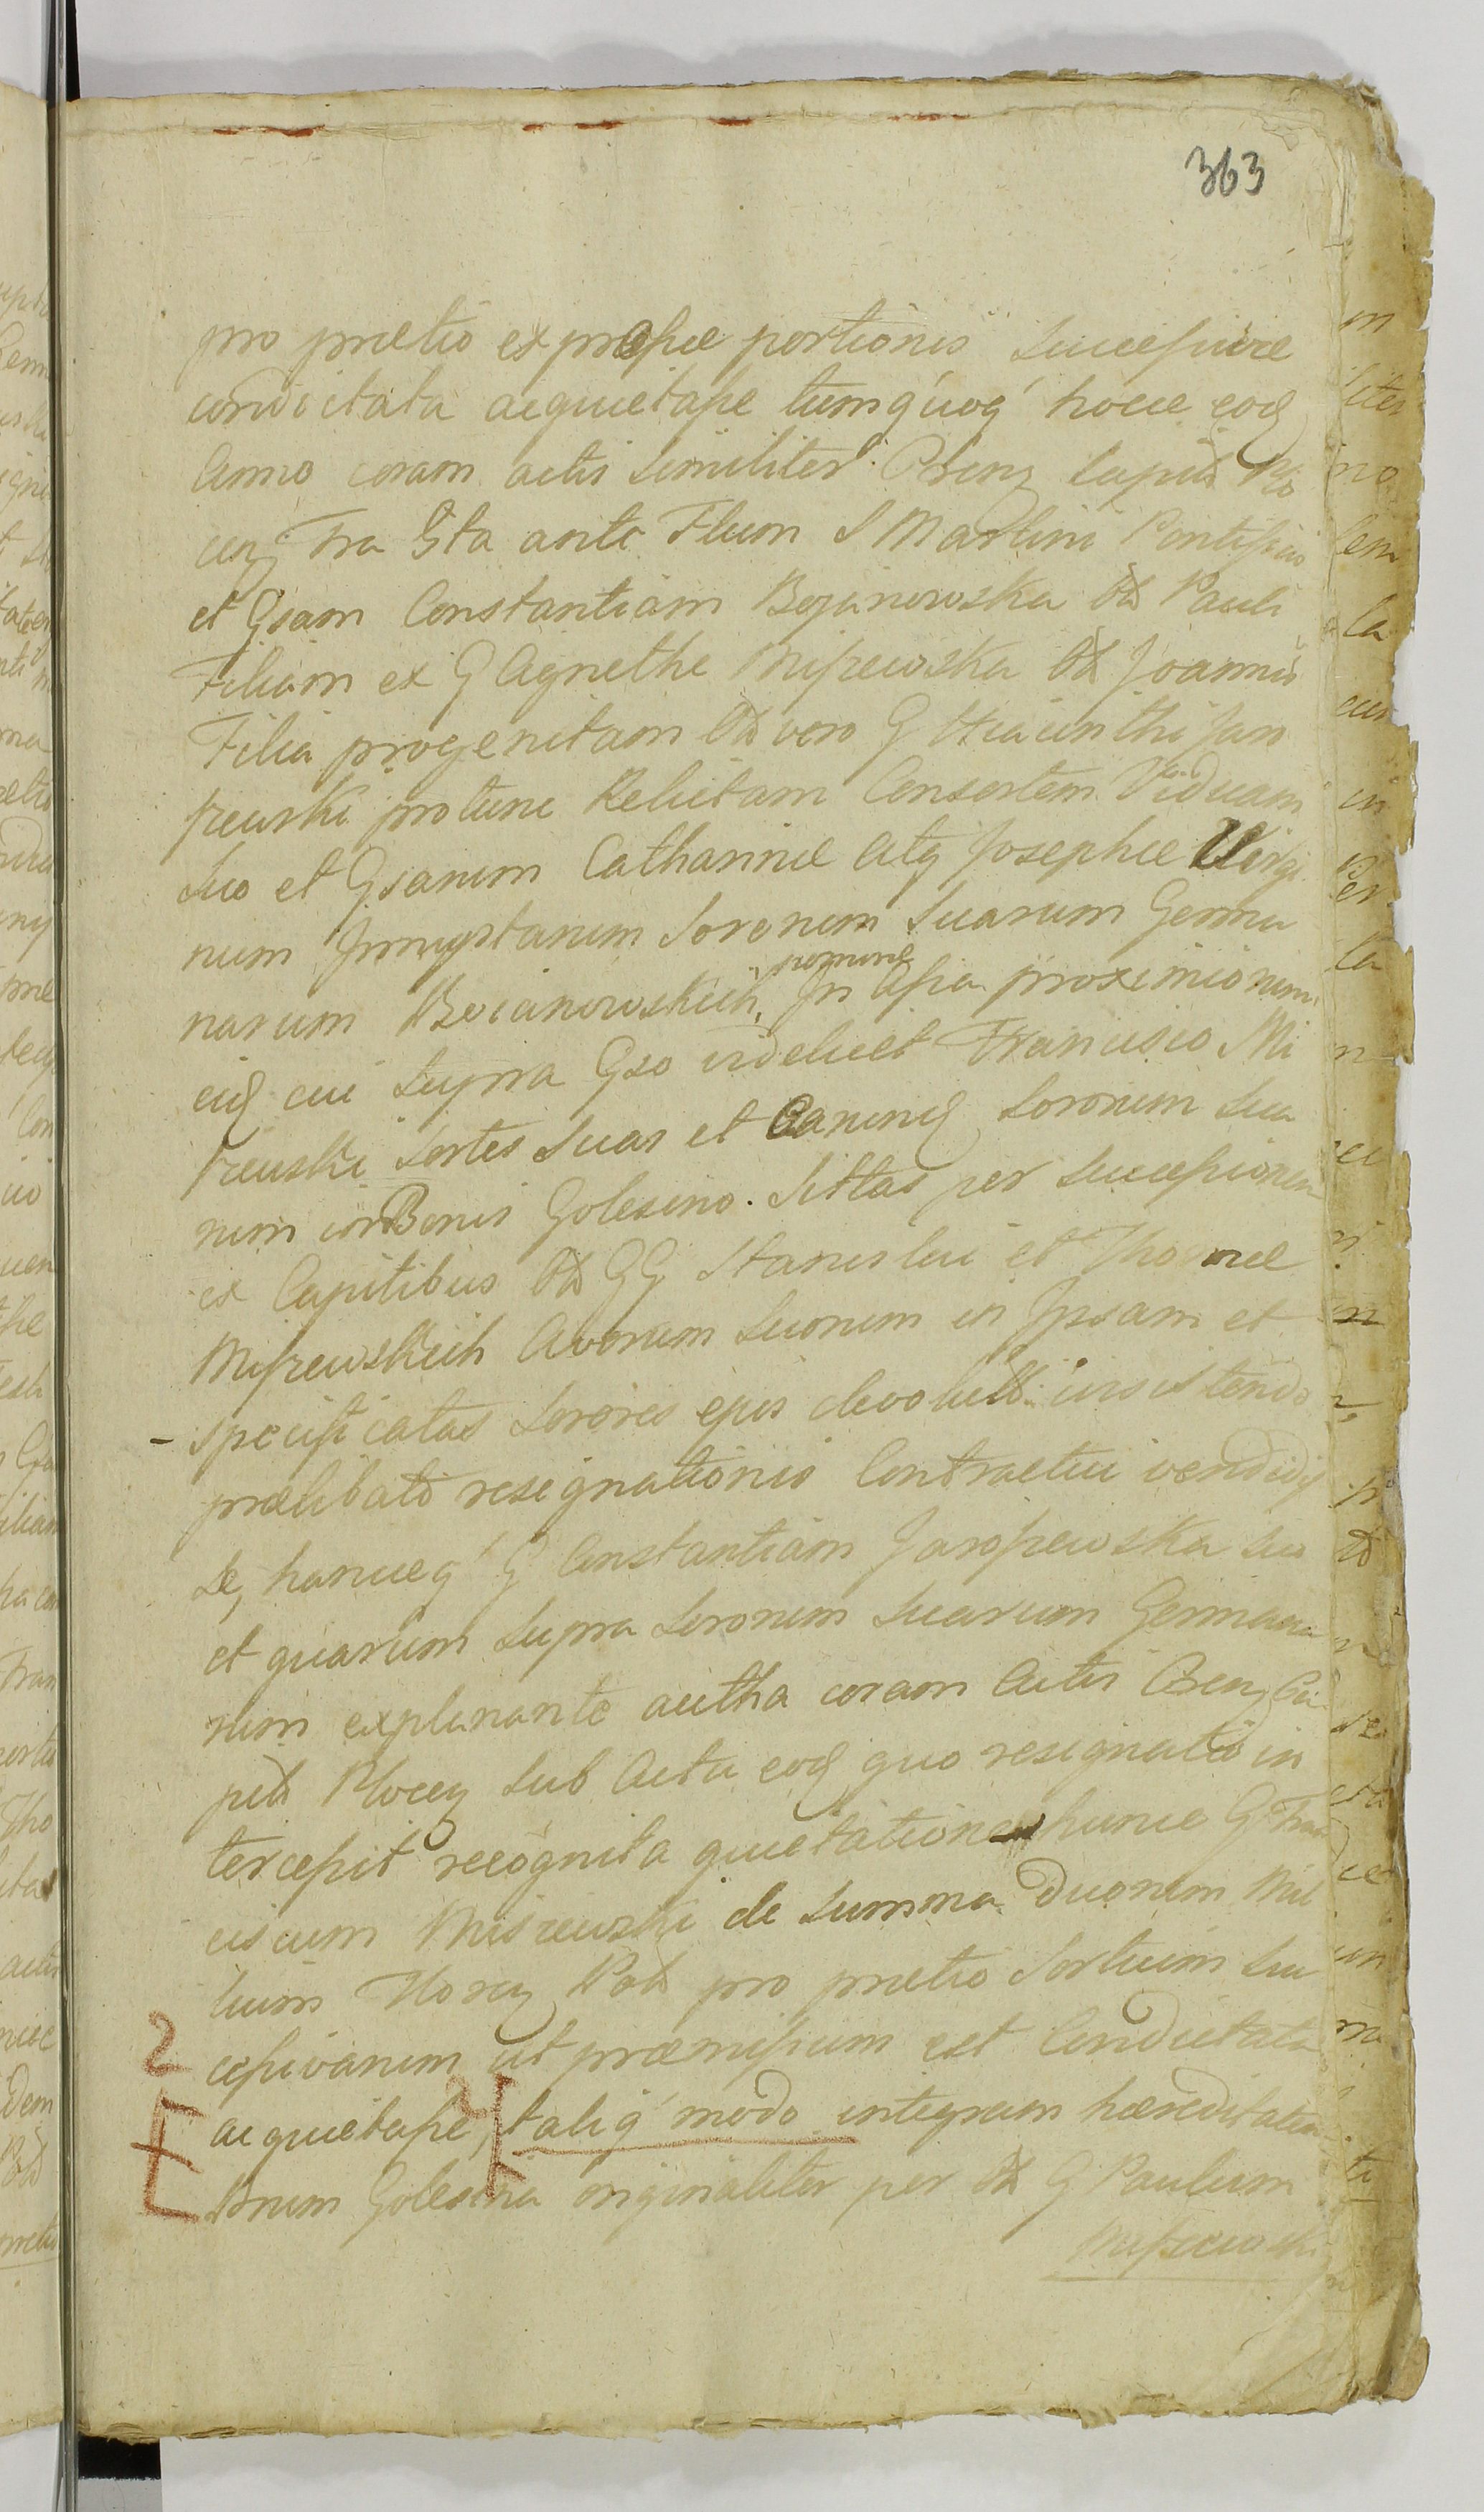 363
pro prætio expressæ portionis successivæ
condictata acquietasse tumq́uoq́ hocce eod
Anno coram actis similiter Osieny Capit Plo
ceny Fra 5ta ante Ftum S Martini Pontificis
et Gsam Constantiam Bojanowska Od Pauli
Filiam ex G Agnethe Miszewska Od Joannis
Filia progenitam Od vero G Hiacinthi Jaro
szewski protunc Relictam Consortem Viduam
Suo et Gsarum Catharinæ Atq Josephæ Virgi
num Innuptarum Sororum Suarum Germa
narum Boianowskich, nomine In Assa proximiorum
eid cui supra Gso videlicet Francisco Mi
szewski sortes suas et Earund Sororum sua
rum in Bonis Golesino. Sittas per successionem
ex Capitibus Od GG Stanislai et Thomæ
Miszewskich Avorum suorum in Ipsam et
- specificatas Sorores ejus devolutt. insistendo
prælibato resignationis Contractui vendidis
se, hancceq́ G Constantiam Jaroszewska suo
et quarum supra Sororum suarum Germana
rum explanante actha coram Actis Osieny Ca
pit Plocen sub Actu eod quo resignatio in
tercessit recognita quietatione hunce G Fran
ciscum Miszewski de summa Duorum Mil
lium Floren Pol pro prætio Sortium suc
2 cessivarum ut præmissum est Condictata
acquietasse, 2 taliq́ modo integram hæreditatem
Bnum Golesina originaliter per Od G Paulum
Miszewski